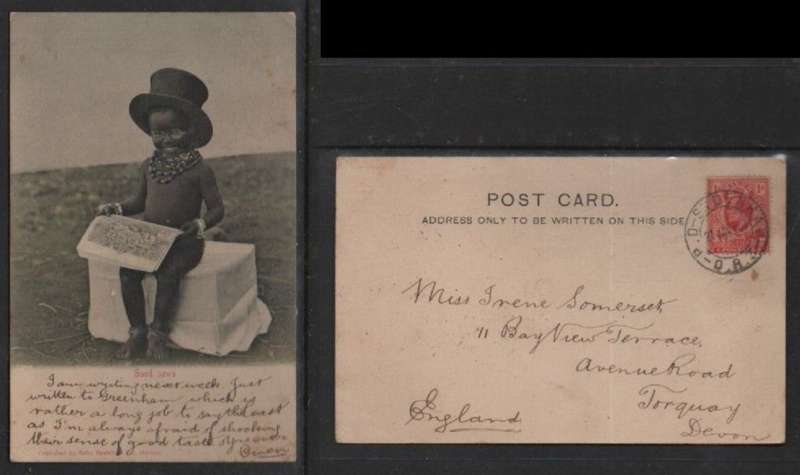 Good news
I am writing next week just
written to Greenham which is
rather a long job to say the least
as I'm always afraid of shocking
their sense of good taste
POST CARD.
ADDRESS ONLY TO BE WRITTEN ON THIS SIDE
Miss Irene Somerset
11 Bay View Terrace,
Avenue Road
Torquay
England
Devon